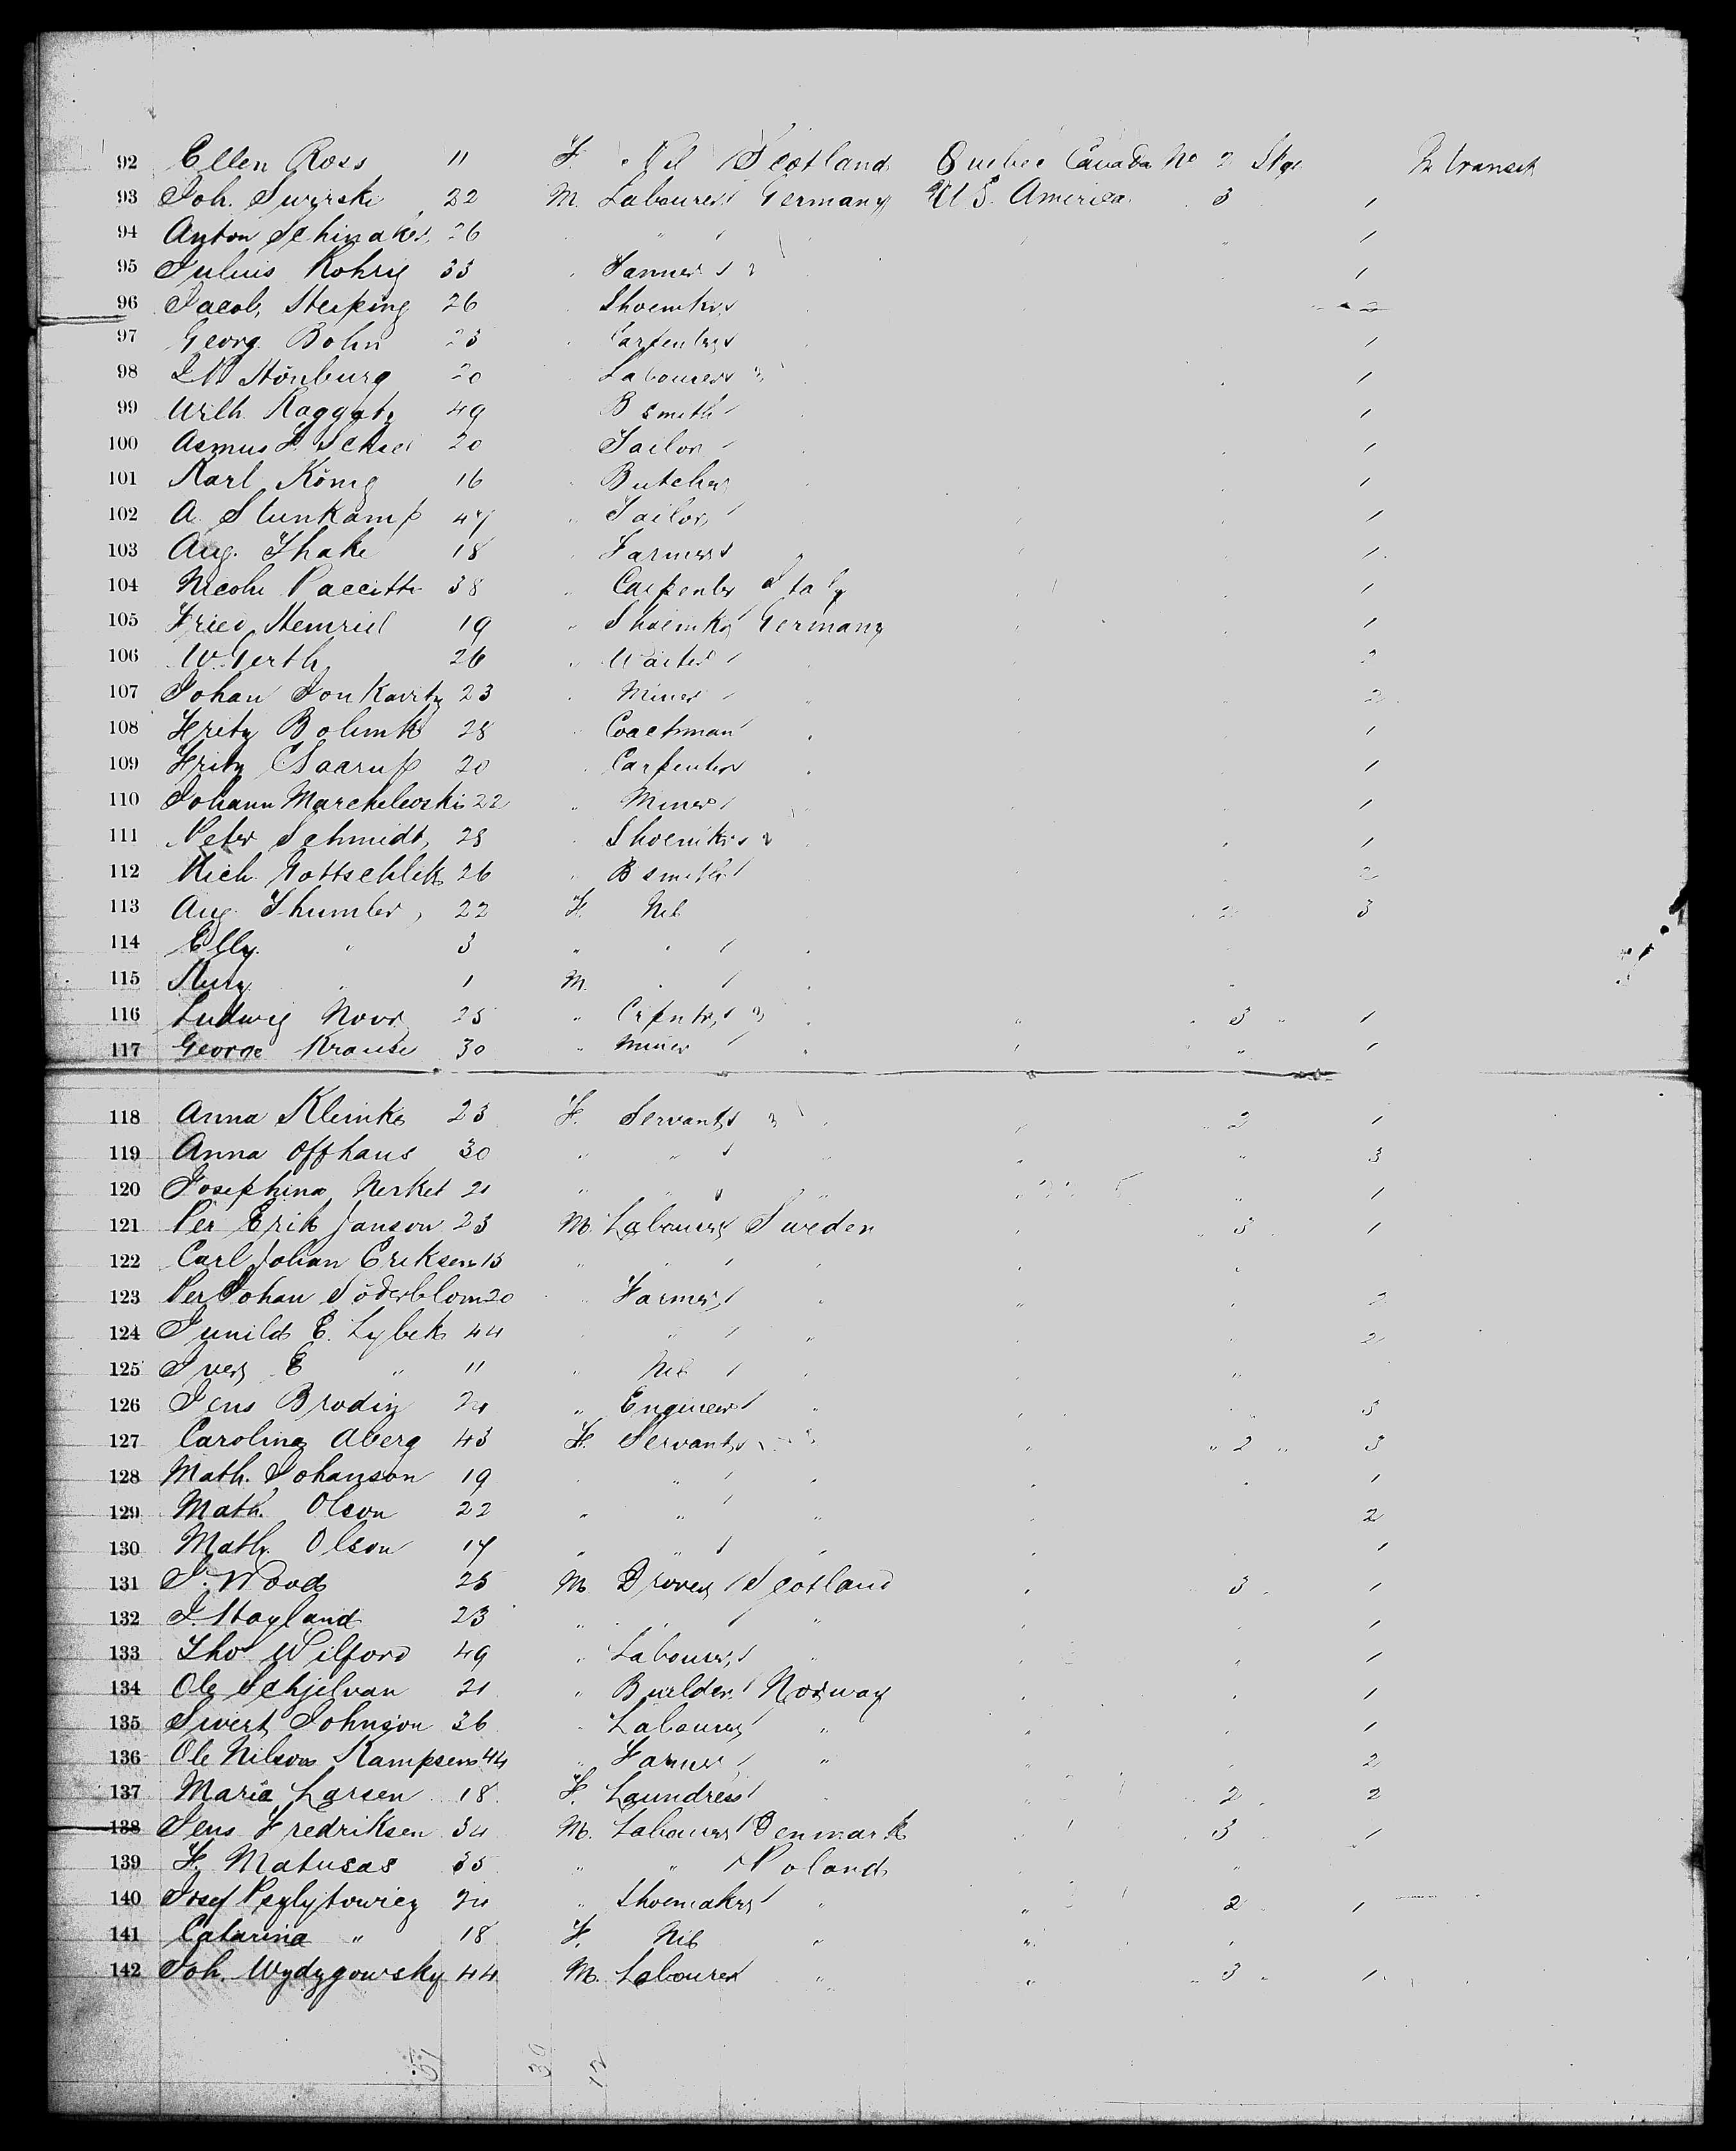 92 Ellen Ross 11 F. Nil Scotland Quebec Canada No 2 Stge In transit
93 Joh. 22 M. Labourer Germany U S. America 3 1
94 Anton 26 " 1
95 Julius Rohrig 33 1
96 Jacob 26 Shoemkr 2
97 Georg Bohn 23 Carpenter 1
98 20 Labourer " 1
99 Wilh. Raggatz 49 B smith 1
100 Asmus F. 20 Tailor 1
101 Karl König 16 Butcher 1
102 A. Stunkamp 47 " Tailor 1
103 Aug. Thake 18 Farmer " 1
104 38 " Carpenter Italy 1
105 Fried 19 " Shoemkr Germany 1
106 W. Gerth 26 " Waiter 2
107 Johan 23 Miner 2
108 Fritz 28 Coachman 1
109 Fritz C Saarup 20 Carpenter 1
110 Johann Marchelewski 22 " Miner 1
111 Peter Schmidt 28 Shoemkr " 1
112 Mich. Gottschlik 26 " B smith 2
113 Aug 22 F. Nil 2 3
114 Elly " 3 " "
115 " 1 M. "
116 Ludwig 25 " Crpntr " 3 " 1
117 George Krause 30 " Miner " 1
118 Anna Kleinke 23 F. Servant " 2 1
119 Anna Offhaus 30 " " " 3
120 Josephina Nerket 21 " " " 1
121 Per Erik Janson 23 M. Labourer Sweden 3 1
122 Carl Johan Eriksen " "
123 Per Johan Söderblom 20 Farmer " 2
124 E. Lybek 44 " " 2
125 Iver E " 11 " Nil "
126 Jens Brodin " Engineer " 3
127 Carolina Aberg 43 F. Servant " 2 " 3
128 Math. Johanson 19 " 1
129 Math. Olson 22 " " " 2
130 Math. Olson " " " 1
131 J. Wood 25 M. Drover Scotland 3 1
132 J. Hoyland 23 " " " 1
133 Tho Wilford 49 " Labourer " 1
134 Ole Schjelvan 21 " Builder Norway 1
135 Sivert Johnson 36 Labourer " 1
136 Ole Nilsen 44 " Farmer " 2
137 Maria Larsen 18 F. Laundress 2 2
138 Jens Fredriksen 34 M. Labourer Denmark 3 1
139 F. Matusas 35 " " Poland "
140 Josef " Shoemaker " 2 1
141 Catarina " 18 F. Nil " "
142 Joh. Wydzgowsky 44 M. Labourer " " 3 " 1